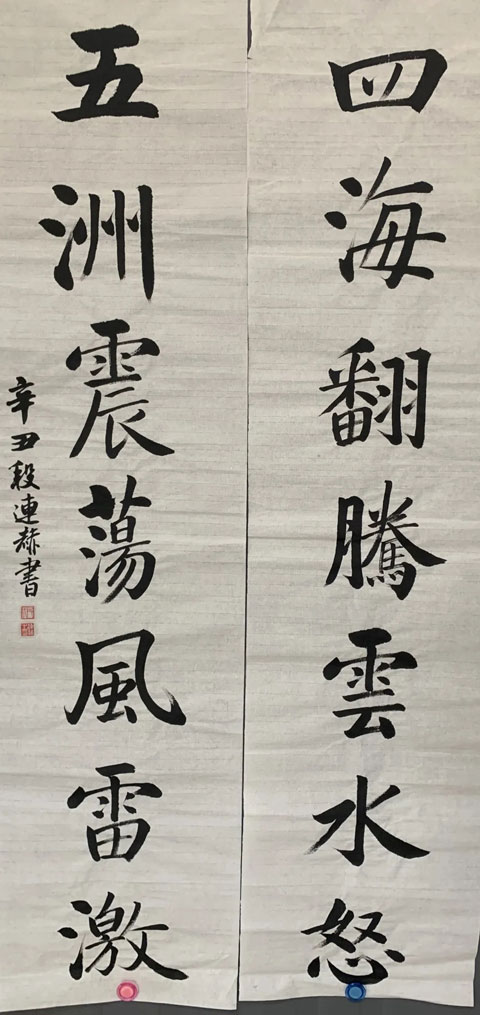 四海翻騰雲水怒
五洲震蕩風雷激
辛丑段連赫書